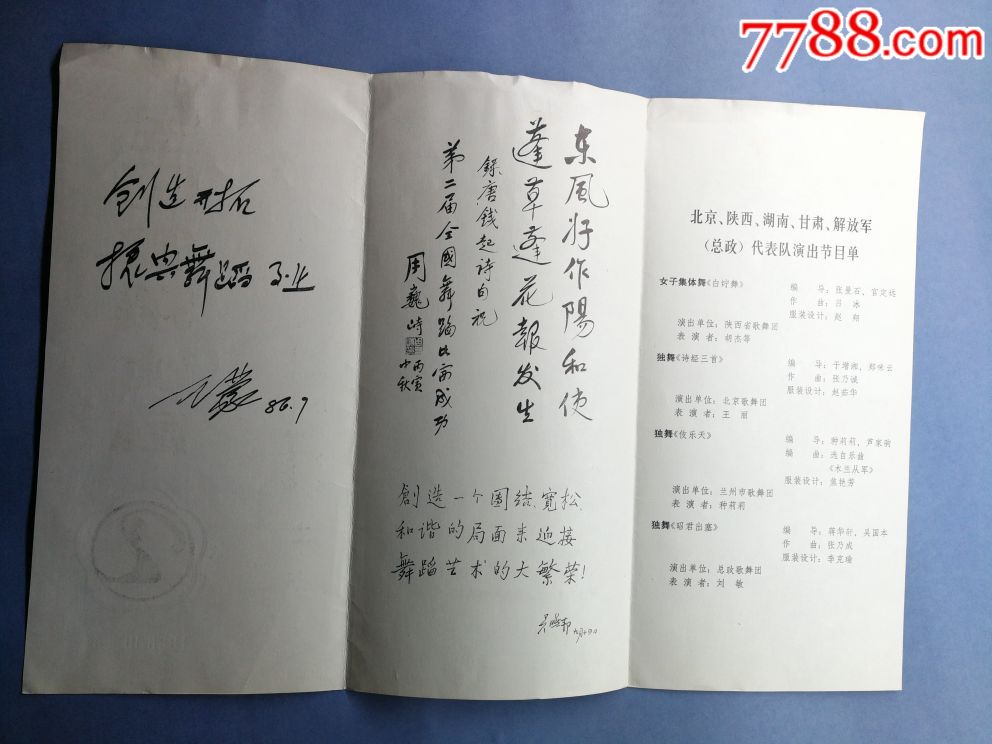 7788.com
創造開拓
振興舞蹈事业
王蒙 86.9
东風好作陽和使
蓬草蓬花報发生
錄唐錢起詩句祝
第二届全國舞蹈比赛成功
周巍峙
丙寅
小秋
創造一个團结、寬松、
和谐的局面来迎接
舞蹈艺术的大繁荣!
吴晓邦
北京、陕西、湖南、甘肃、解放军
(总政)代表队演出节目单
女子集体舞《白纻舞》
编 导:张曼石、官定远
作 曲:吕 冰
服装设计:赵 翔
演出单位:陕西省歌舞团
表 演 者:胡杰等
独舞《诗经三首》
编 导:于增湘,郑咏云
作 曲:张乃诚
服装设计:赵茹华
演出单位:北京歌舞团
表 演 者:王 丽
独舞《伎乐天》
编 导:种莉莉,芦家驹
编 曲:选自乐曲
《木兰从军》
服装设计:焦艳芳
演出单位:兰州市歌舞团
表 演 者:种莉莉
独舞《昭君出塞》
编 导:蒋华轩,吴国本
作 曲:张乃成
服装设计:李克瑜
演出单位:总政歌舞团
表 演 者:刘 敏